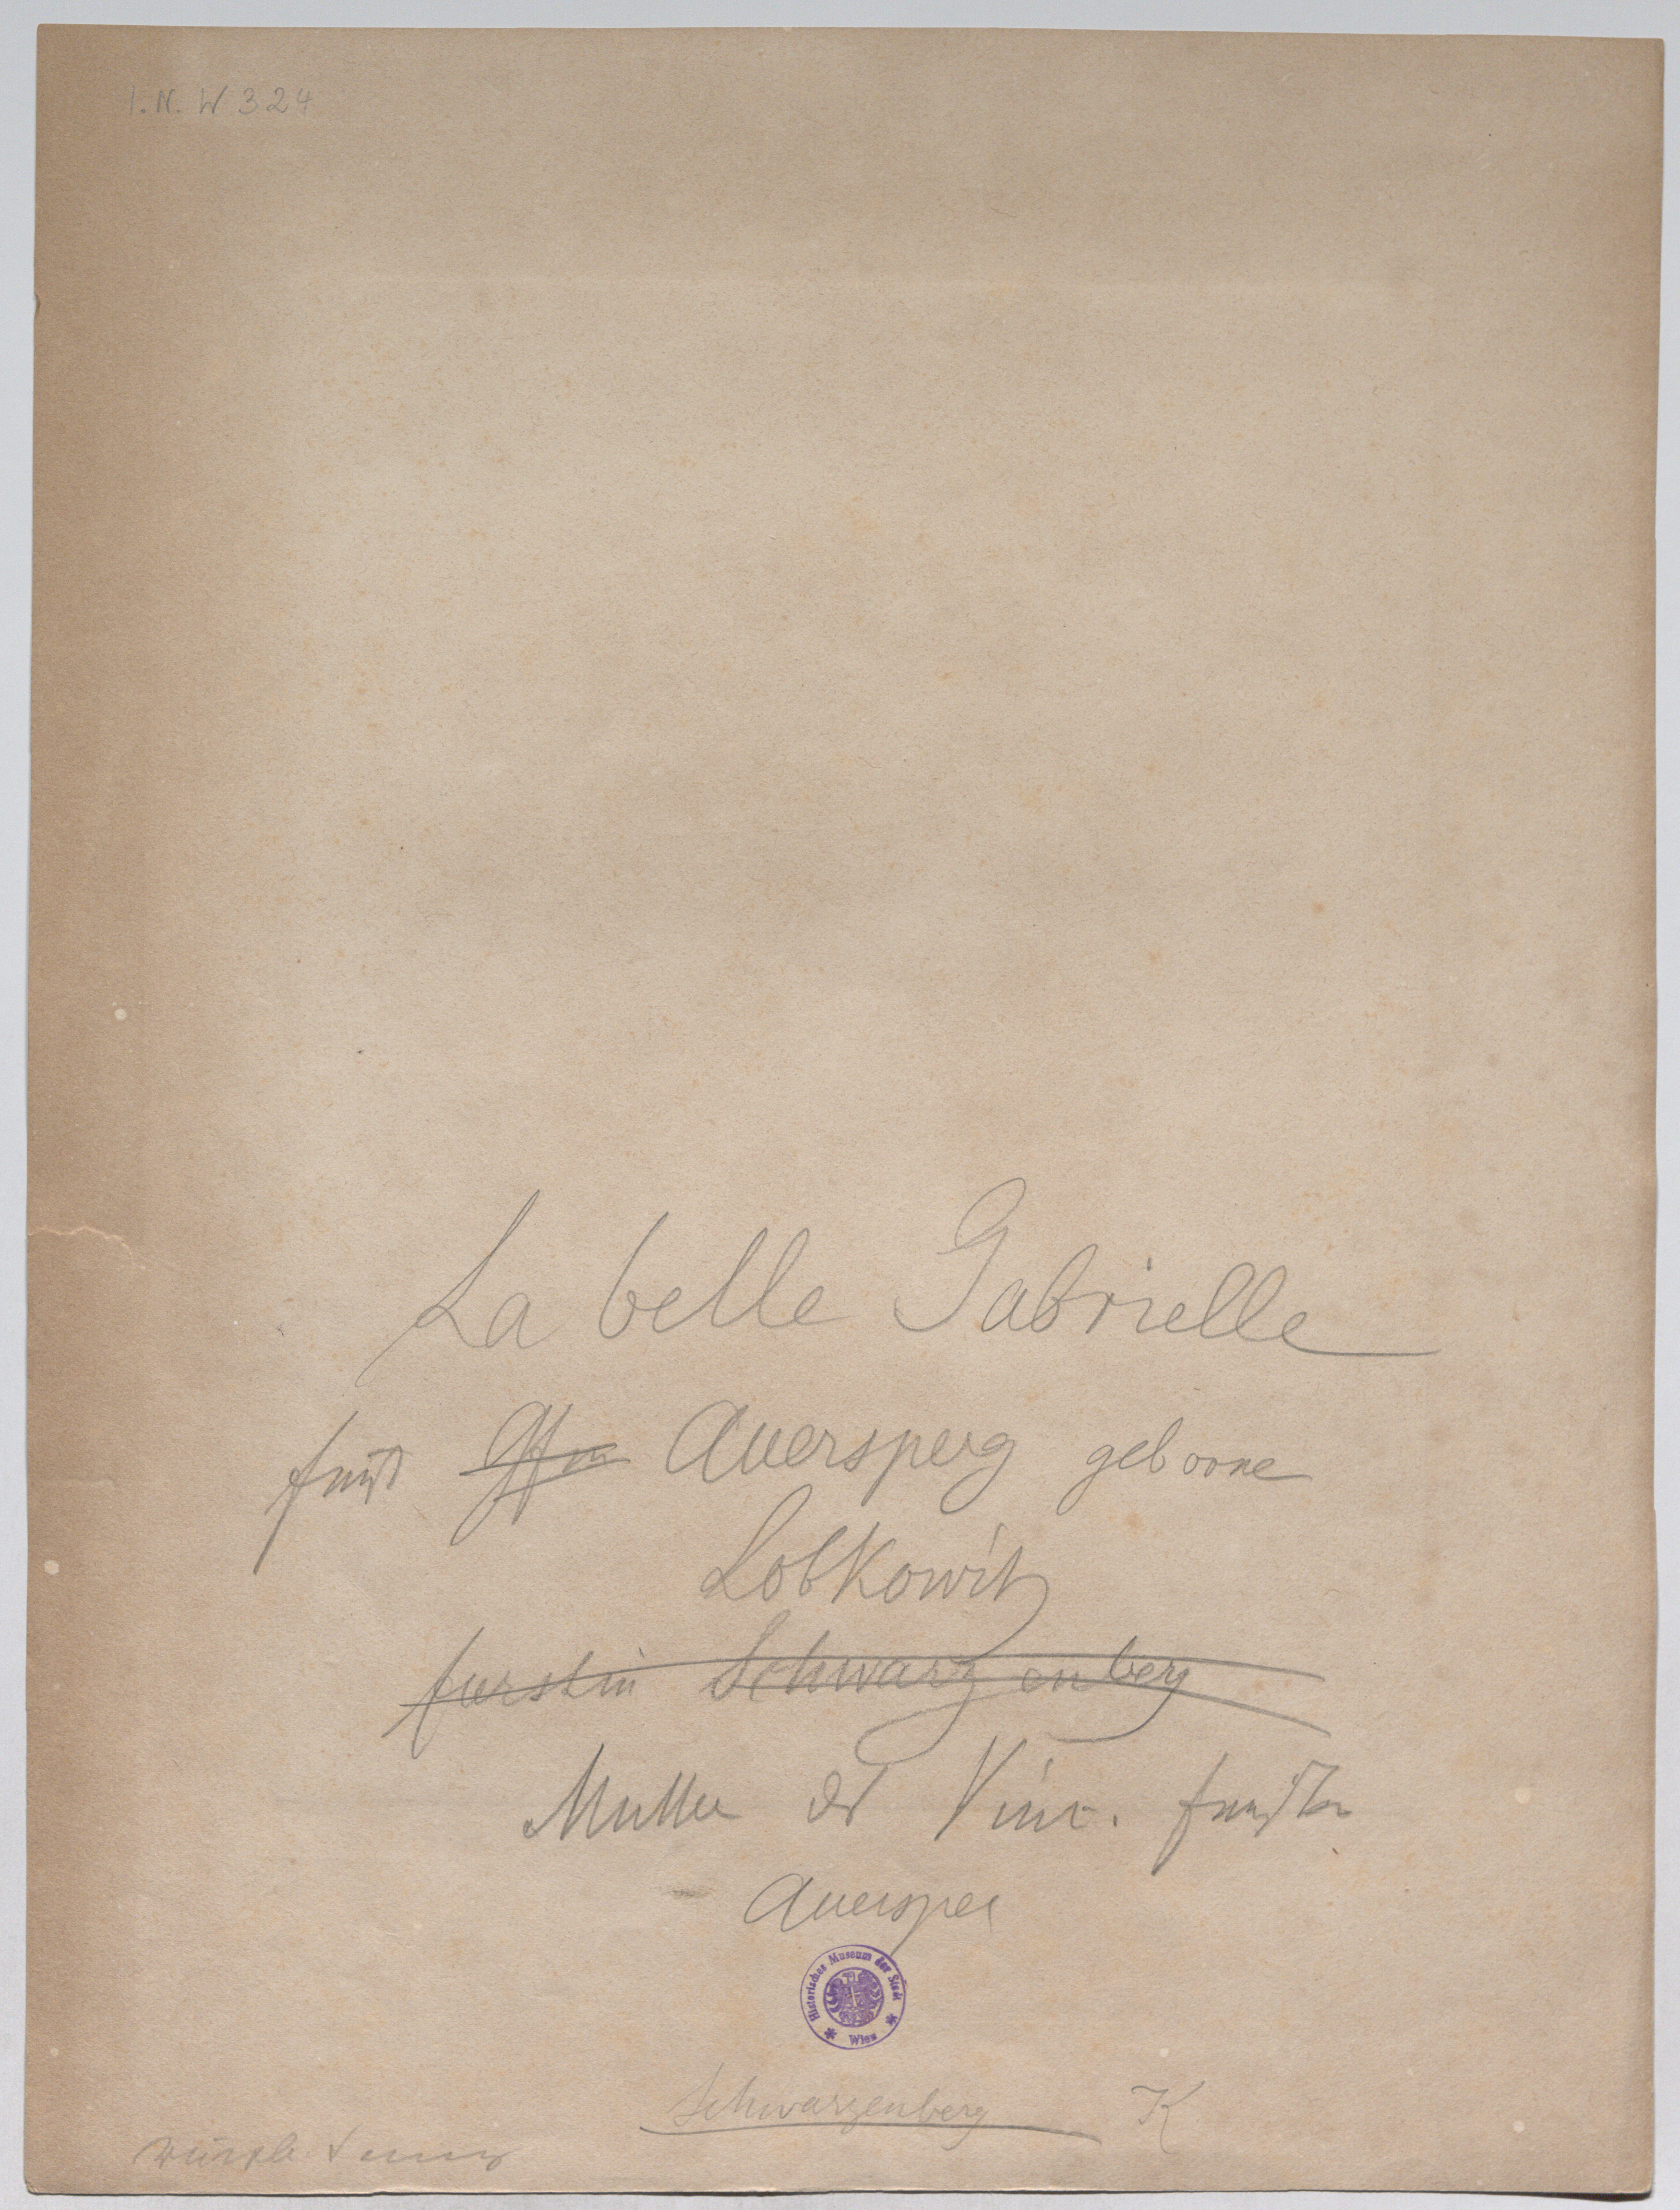 I.N. W 324
La belle Gabrielle
Fürst Auersperg geborne
Lobkowitz
fürstin Schwarzenberg
Mutter des Vinc. fürsten
Auersper
Historisches Museum der Stadt Wien
Schwarzenberg K